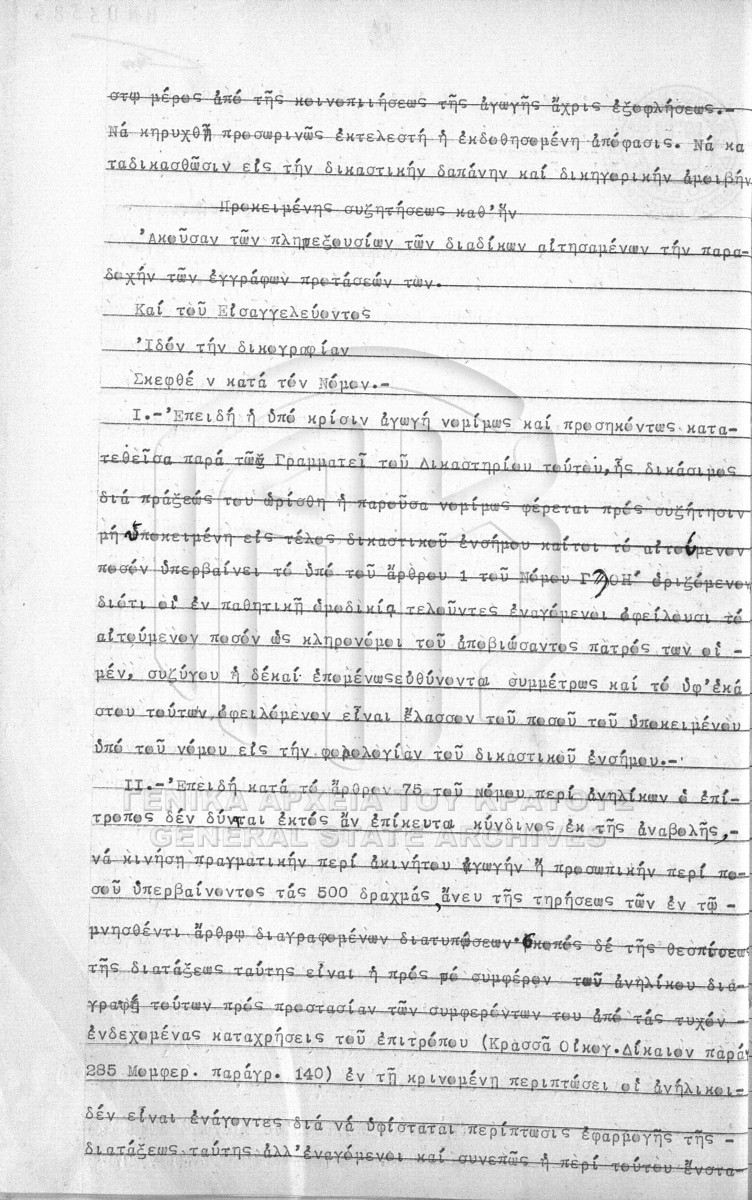 στῳ μέρος ἀπό τῆς κοινοπιιήσεως τῆς ἀγωγῆς ἄχρις ἐξοφλήσεως.-
Νά κηρυχθῇ προσωρινῶς ἐκτελεστή ἡ ἐκδοθησομένη ἀπόφασις. Νά κα
ταδικασθῶσιν εἰς τήν δικαστικήν δαπάνην καί δικηγορικήν ἀμοιβήν
Προκειμένης συζητήσεως καθ'ἥν
'Ακοῦσαν τῶν πληρεξουσίων τῶν διαδίκων αἰτησαμένων τήν παρα-
δοχήν τῶν ἐγγράφων προτάσεών των.
Καί τοῦ Εἰσαγγελεύοντος
'Ιδόν τήν δικογραφίαν
Σκεφθέ ν κατά τόν Νόμον.-
Ι.-'Επειδή ἡ ὑπό κρίσιν ἀγωγή νομίμως καί προσηκόντως κατα-
τεθεῖσα παρά τῷ Γραμματεῖ τοῦ Δικαστηρίου τούτου, ἧς δικάσιμος
διά πράξεώς του ὡρίσθη ἡ παροῦσα νομίμως φέρεται πρός συζήτησιν
μή ὑποκειμένη εἰς τέλος δικαστικοῦ ἐνσήμου καίτοι τό αἰτούμενον
ποσόν ὑπερβαίνει τό ὑπό τοῦ ἄρθρου 1 τοῦ Νόμου ΓλΟΗ' ὁριζόμενον
διότι οἱ ἐν παθητικῇ ὁμοδικίᾳ τελοῦντες ἐναγόμενοι ὀφείλουσι τό
αἰτούμενον ποσόν ὡς κληρονόμοι τοῦ ἀποβιώσαντος πατρός των οἱ -
μέν, συζύγου ἡ δέκαί ἐπομένωςεὐθύνονται συμμέτρως καί τό ὑφ'ἑκά
στου τούτων ὀφειλόμενον εἶναι ἔλασσον τοῦ ποσοῦ τοῦ ὑποκειμένου
ὑπό τοῦ νόμου εἰς τήν φορολογίαν τοῦ δικαστικοῦ ἐνσήμου.-
ΙΙ.-'Επειδή κατά τό ἄρθρον 75 τοῦ Νόμου περί ἀνηλίκων ὁ ἐπί-
τροπος δέν δύναται ἐκτός ἄν ἐπίκευται κύνδινος ἐκ τῆς ἀναβολῆς,-
νά κινήσῃ πραγματικήν περί ἀκινήτου ἀγωγήν ἤ προσωπικήν περί πο-
σοῦ ὑπερβαίνοντος τάς 500 δραχμάς, ἄνευ τῆς τηρήσεως τῶν ἐν τῷ -
μνησθέντι ἄρθρῳ διαγραφομένων διατυπώσεων· σκοπός δέ τῆς θεσπίσεως
τῆς διατάξεως ταύτης εἶναι ἡ πρός τό συμφέρον τοῦ ἀνηλίκου δια-
γραφή τούτων πρός προστασίαν τῶν συμφερόντων του ἀπό τάς τυχόν -
ἐνδεχομένας καταχρήσεις τοῦ ἐπιτρόπου (Κρασσᾶ Οἰκογ.Δίκαιον παρά
285 Μομφερ. παράγρ. 140) ἐν τῇ κρινομένη περιπτώσει οἱ ἀνήλικοι-
δέν εἶναι ἐνάγοντες διά νά ὑφίσταται περίπτωσις ἐφαρμογῆς τῆς -
διατάξεως ταύτης ἀλλ'ἐναγόμενοι καί συνεπῶς ἡ περί τούτου ἔνστα-
ΓΕΝΙΚΑ ΑΡΧΕΙΑ ΤΟΥ ΚΡΑΤΟΥΣ
GENERAL STATE ARCHIVES